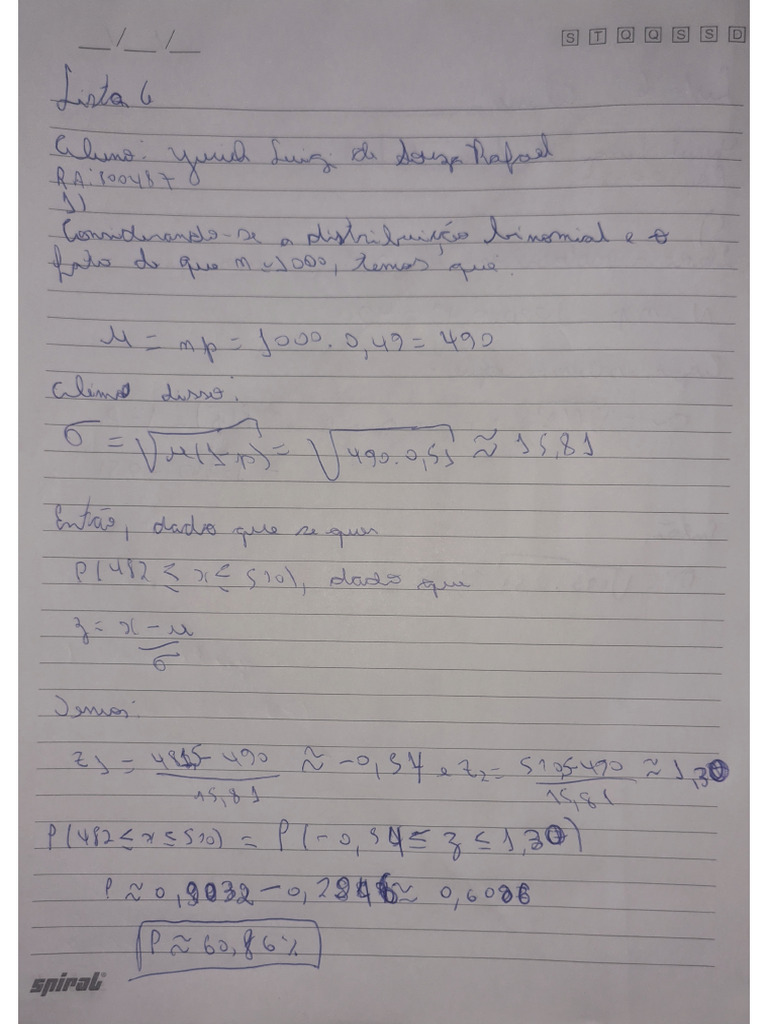 __/__/__ S T Q Q S S D
Lista 6
Aluno: Luiz de Souza Rafael
RA:800487
1)
Considerando-se a distribuição binomial e o
fato de que n=1000, temos que:
μ = np = 1000.0,49 = 490
Além disso:
σ = √μ(1-p) = √490.0,51 ≈ 15,81
Então, dado que se quer
P(482 ≤ x ≤ 510), dado que
z = x - μ
σ
Temos:
z1 = 481,5 - 490 ≈ -0,54 e z2 = 510,5-490 ≈ 1,30
15,81 15,81
P(482 ≤ x ≤ 510) = P(-0,54 ≤ z ≤ 1,30)
P ≈ 0,9032 - 0,2946 ≈ 0,6086
P ≈ 60,86%
spiral